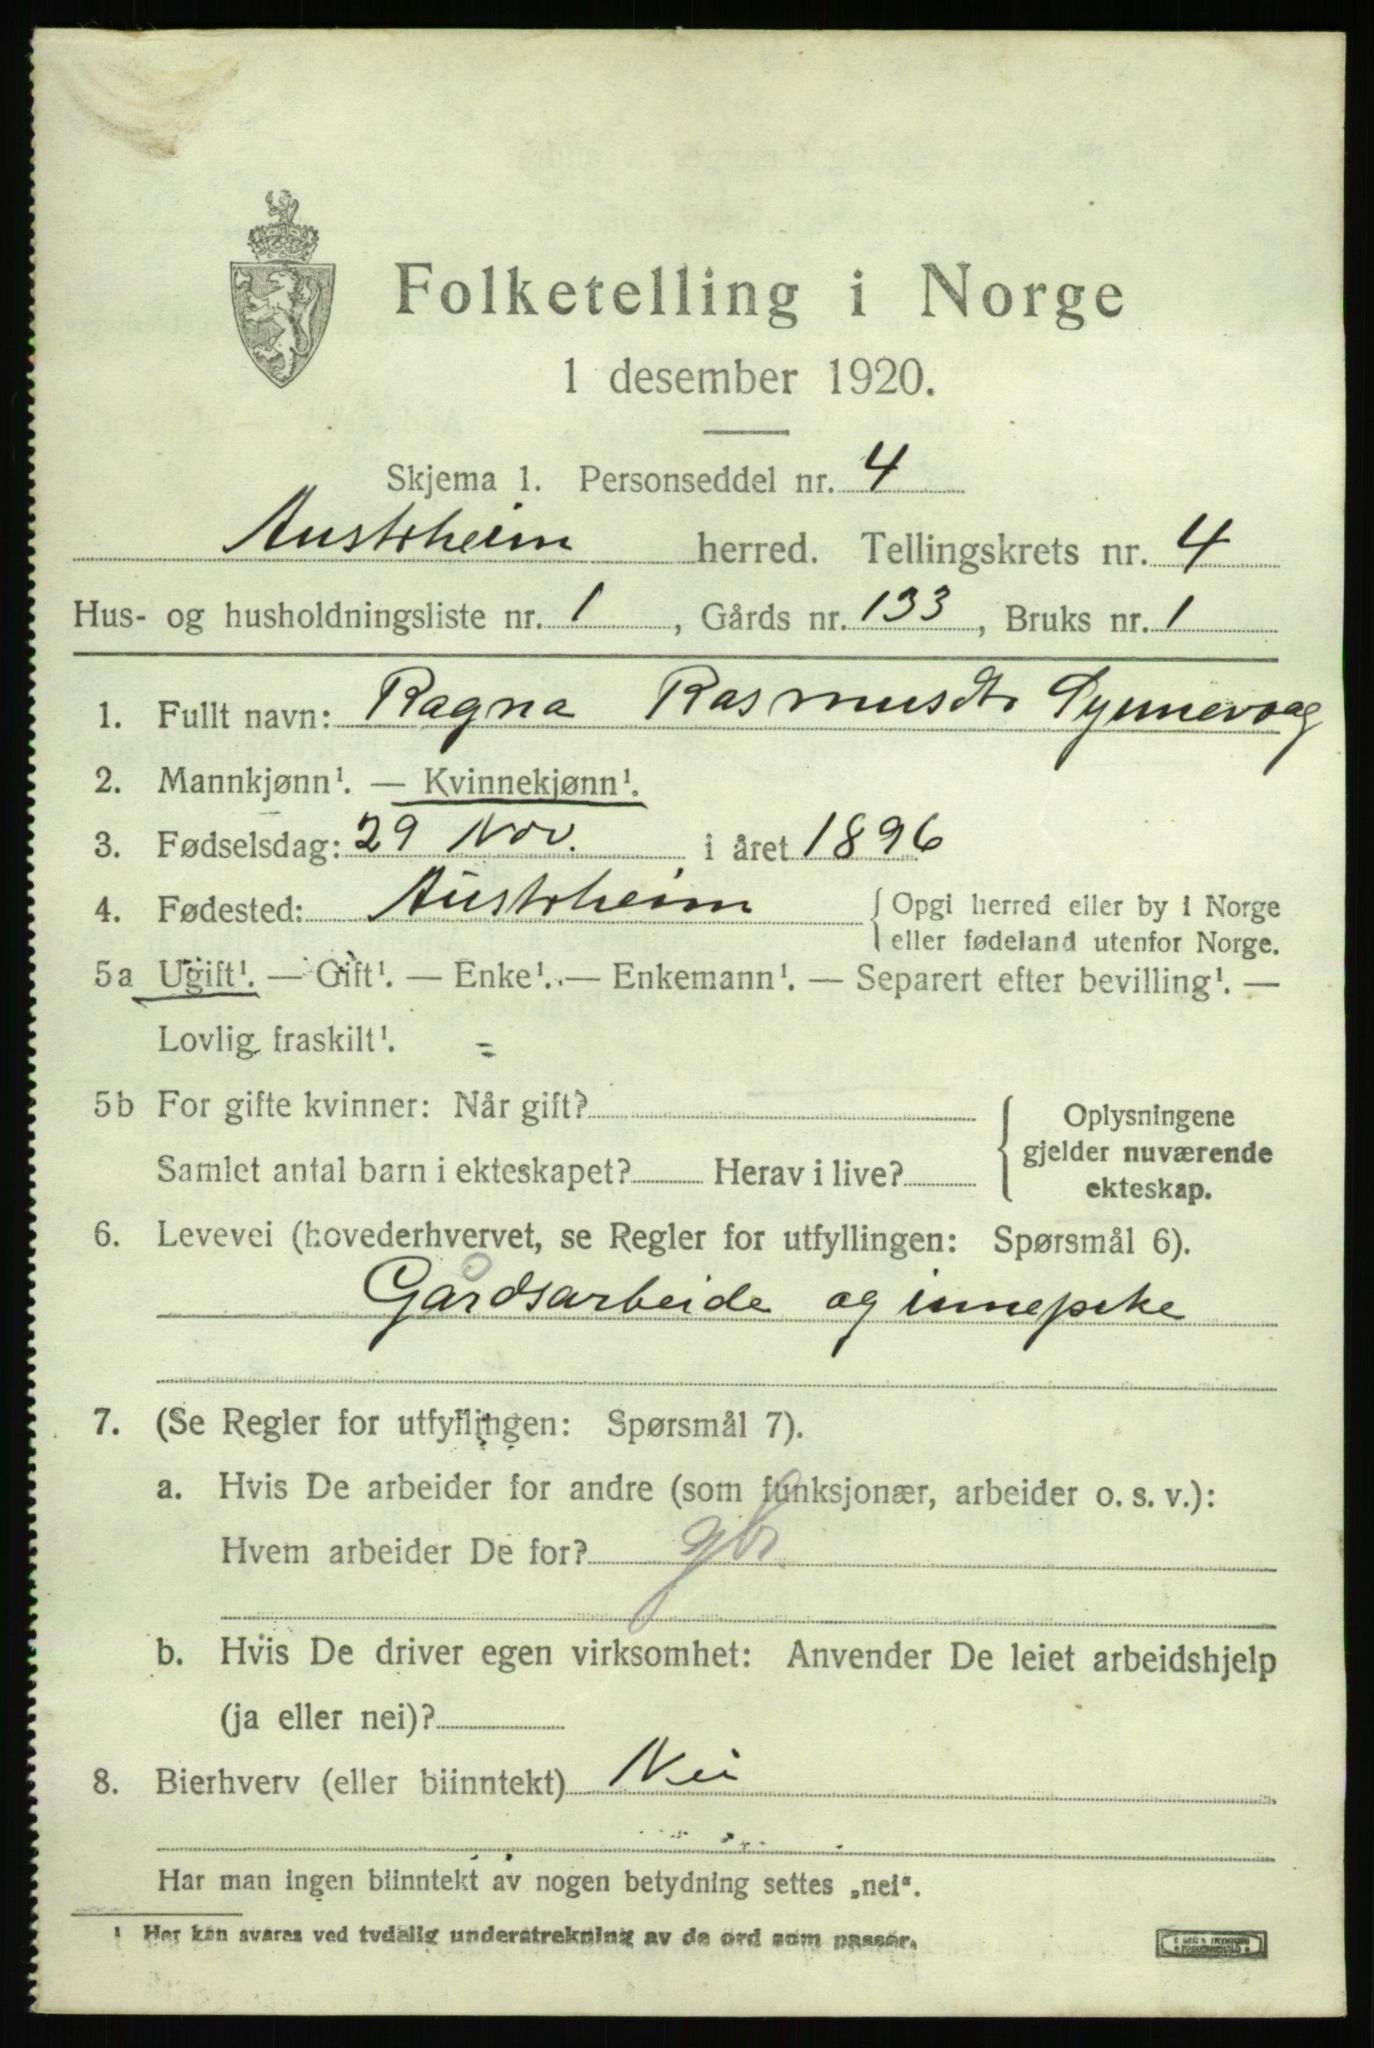 Folketelling i Norge
1 desember 1920.
Skjema 1. Personseddel nr. 4
Austrheim herred. Tellingskrets nr. 4
Hus- og husholdningsliste nr. 1, Gårds nr. 133, Bruks nr. 1
1. Fullt navn: Ragna Rasmusdtr Synnevaag
2. Mannkjønn¹. — Kvinnekjønn¹.
3. Fødselsdag: 29 Nov. i året 1896
4. Fødested: Austrheim { Opgi herred eller by i Norge
eller fødeland utenfor Norge.
5a Ugift¹. — Gift¹. — Enke¹. — Enkemann¹. — Separert efter bevilling¹. —
Lovlig fraskilt¹.
5b For gifte kvinner: Når gift?
Samlet antal barn i ekteskapet? Herav i live?
{ Oplysningene
gjelder nuværende
ekteskap.
6. Levevei (hovederhvervet, se Regler for utfyllingen: Spørsmål 6).
Gårdsarbeide og
7. (Se Regler for utfyllingen: Spørsmål 7).
a. Hvis De arbeider for andre (som funksjonær, arbeider o. s. v.):
Hvem arbeider De for? gbr.
b. Hvis De driver egen virksomhet: Anvender De leiet arbeidshjelp
(ja eller nei)?
8. Bierhverv (eller biinntekt) Nei
Har man ingen biinntekt av nogen betydning settes „nei".
¹ Her kan svares ved tydelig understrekning av de ord som passer.